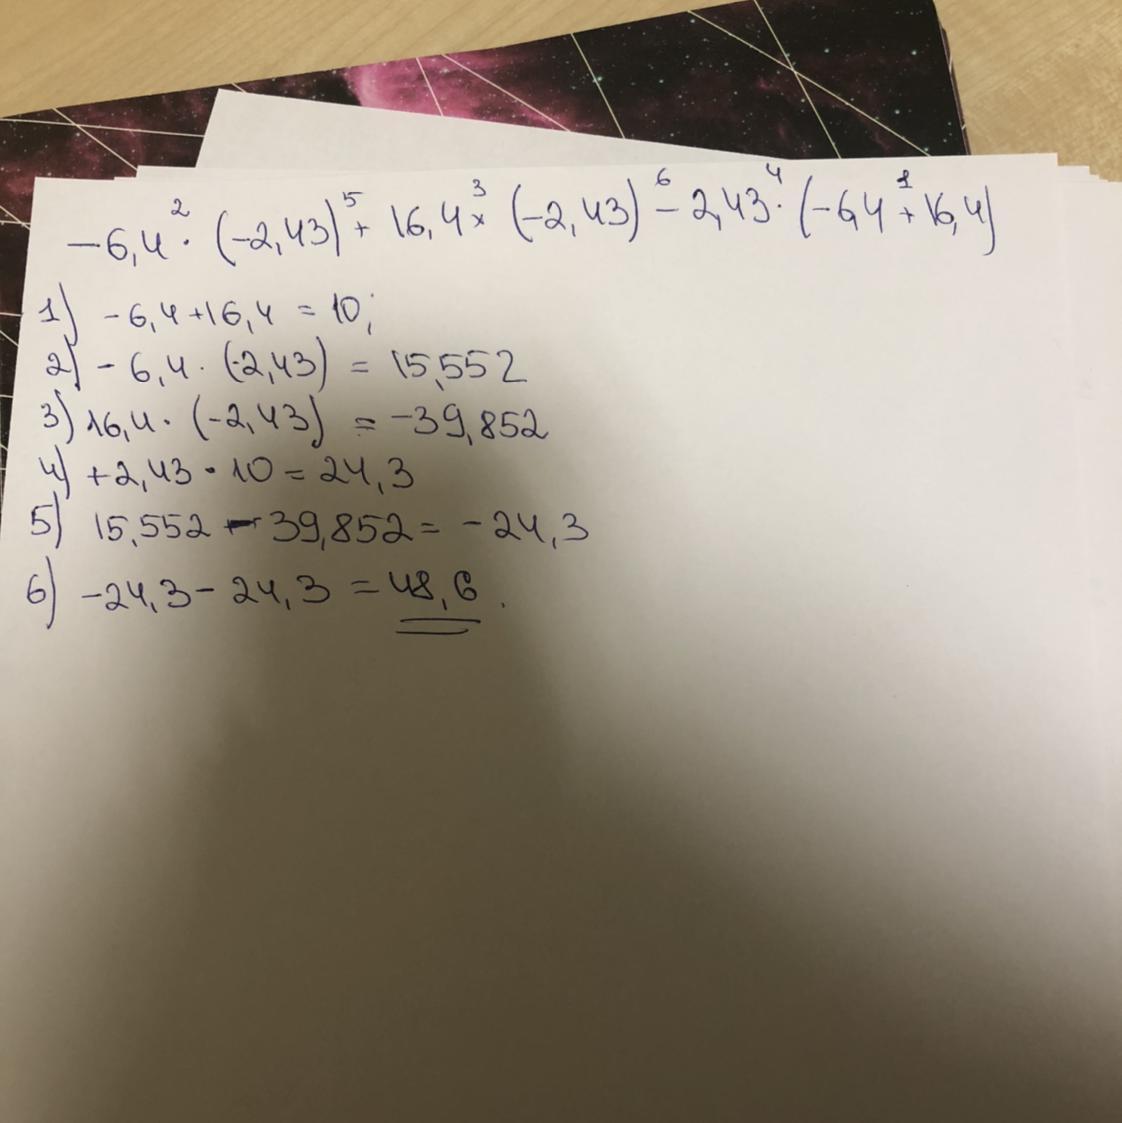 -6,4 · (-2,43) + 16,4 × (-2,43) - 2,43 · (-6,4 + 16,4)
1) -6,4+16,4 = 10;
2) -6,4 · (-2,43) = 15,552
3) 16,4 · (-2,43) = -39,852
4) +2,43 · 10 = 24,3
5) 15,552 - 39,852 = -24,3
6) -24,3 - 24,3 = 48,6.